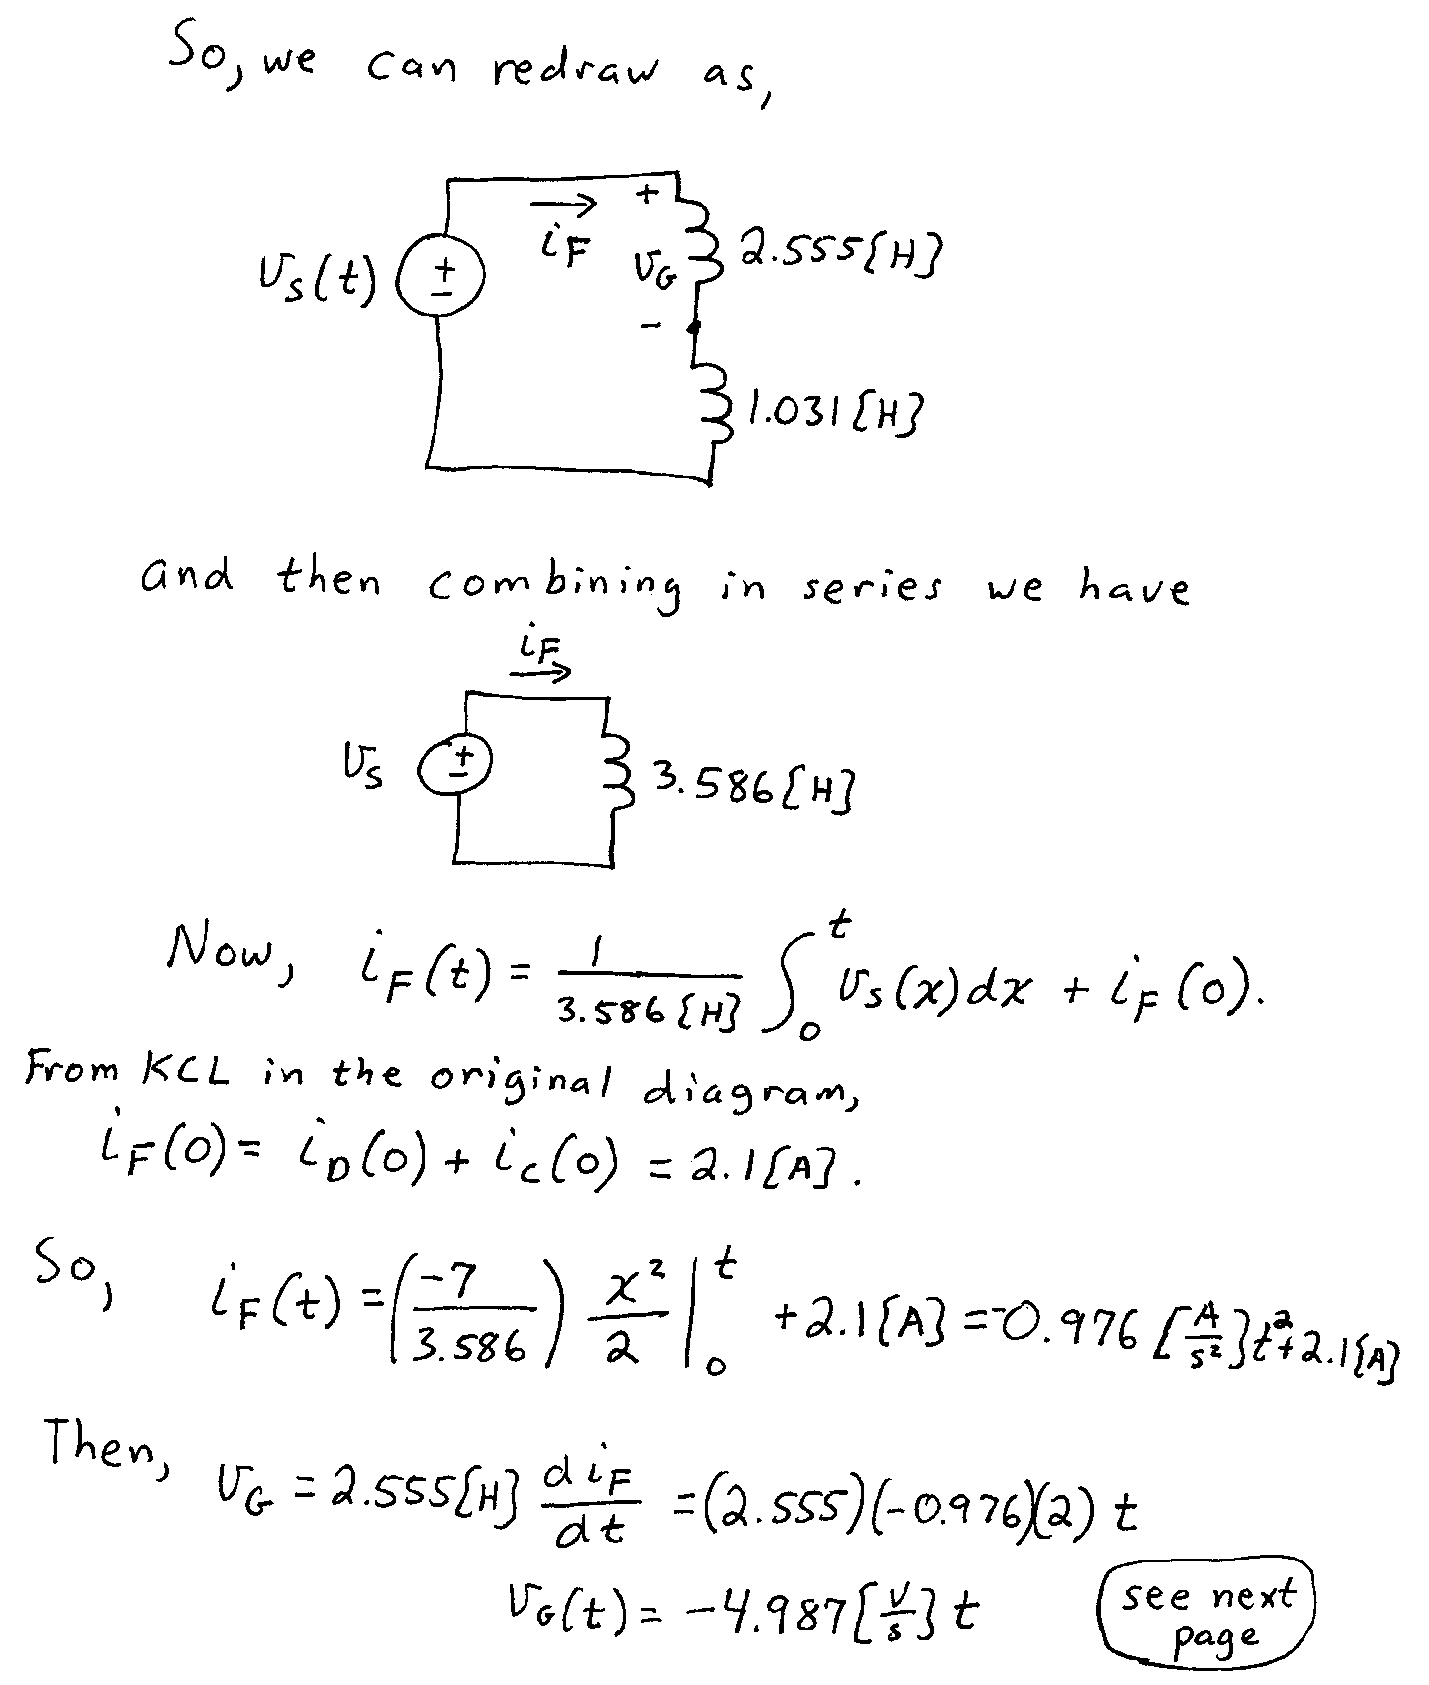 So, we can redraw as,
+
iF
vS(t)
+
-
vG
2.555[H]
-
1.031[H]
and then combining in series we have
iF
vS
+
-
3.586[H]
Now, iF(t) = 1/3.586[H] ∫₀ᵗ vS(x)dx + iF(0).
From KCL in the original diagram,
iF(0) = iD(0) + iC(0) = 2.1[A].
So, iF(t) = (-7/3.586) x²/2 |₀ᵗ + 2.1[A] = -0.976[A/s²]t² + 2.1[A]
Then, vG = 2.555[H] diF/dt = (2.555)(-0.976)(2) t
vG(t) = -4.987[V/s] t
see next
page